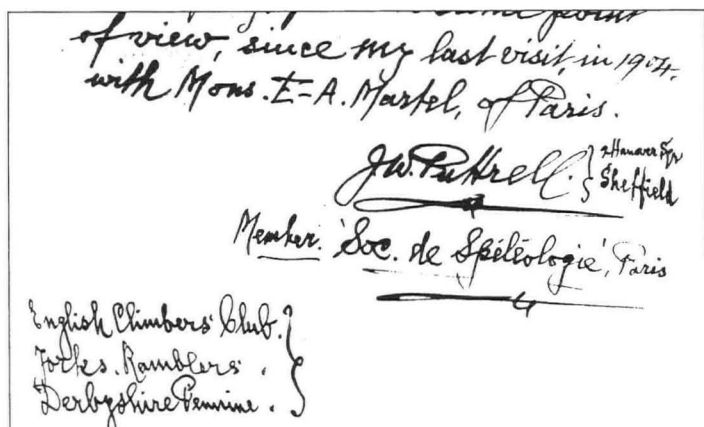 point
of view, since my last visit, in 1904.
with Mons. E-A. Martel, of Paris.
J.W. Puttrell. } 2 Hanover Sqr
Sheffield
Member. 'Soc. de Spéléologie', Paris
English Climbers' Club.
Yorks. Ramblers' .
Derbyshire Pennine .